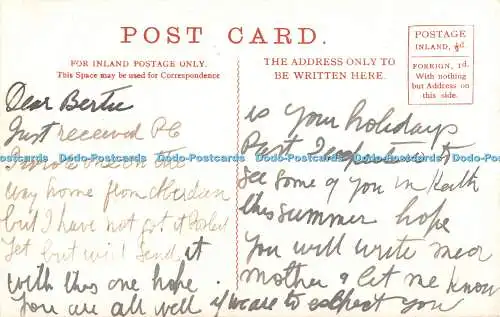 POST CARD.
FOR INLAND POSTAGE ONLY.
This Space may be used for Correspondence
THE ADDRESS ONLY TO
BE WRITTEN HERE.
POSTAGE
INLAND, ½d
FOREIGN, 1d.
With nothing
but Address on
this side.
Dear Bertie
Just received PC
I wrote one on the
way home from Aberdeen
but I have not got it Posted
yet but will send it
with this one hope
you are all well if we are to expect you
is your holidays
Past I expected to
see some of you in
this summer hope
you will write near
mother & let me know
Dodo-Postcards Dodo-Postcards Dodo-Postcards Dodo-Postcards Dodo-Postcards Dodo-Postcards